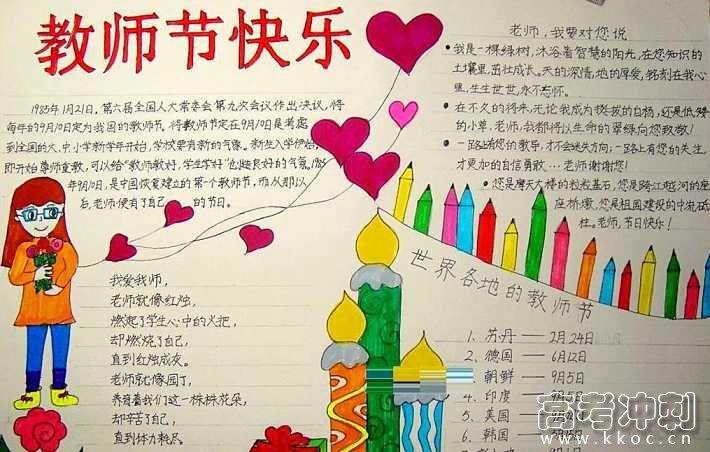 教师节快乐
1985年1月21日,第六届全国人大常委会第九次会议作出决议,将
每年的9月10日定为我国的教师节。将教师节定在9月10日是考虑
到全国的大、中小学新学年开始,学校要有新的气象。新生入学伊始,
即开始尊师重教,可以给“教师教好,学生学好”创造良好的气氛。1985
年9月10日,是中国恢复建立的第一个教师节,而从那以
后,老师便有了自己的节日。
我爱我师,
老师就像红烛,
燃起了学生心中的火把,
却燃烧了自己,
直到红烛成灰。
老师就像园丁,
养育着我们这一株株花朵,
却辛苦了自己,
直到体力耗尽。
老师,我要对您说
我是一棵绿树,沐浴着智慧的阳光,在您知识的
土壤里,茁壮成长。天的深情,地的厚爱,铭刻在我心
里,生生世世,永不忘怀。
在不久的将来,无论我成为挺拔的白杨,还是低矮
的小草,老师,我都将以生命的翠绿向您致敬!
一路上有您的教导,才不会迷失方向;一路上有您的关注,
才更加的自信勇敢…老师谢谢您!
您是摩天大楼的粒粒基石,您是跨江越河的座
座桥墩,您是祖国建设的中流砥
柱。老师,节日快乐!
世界各地的教师节
1、苏丹——2月24日
2、德国——6月12日
朝鲜——9月5日
4、印度——9月5日
5、美国
6、韩国
高考冲刺
www.kkoc.cn